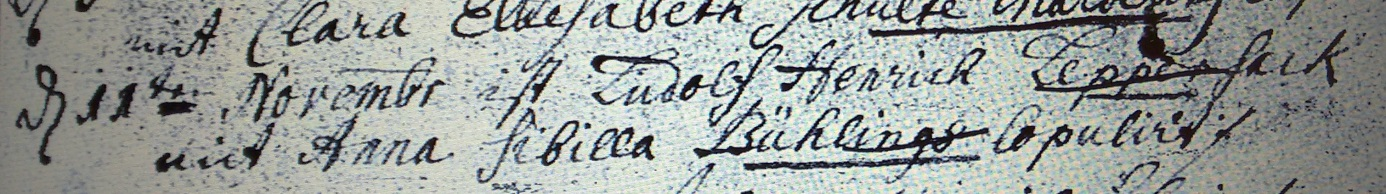 mit Clara Elliesabeth Schulte
D 11ten Novembr ist Ludolf Henrich Leppensack
mit Anna Sibilla Bühlings Copulirt